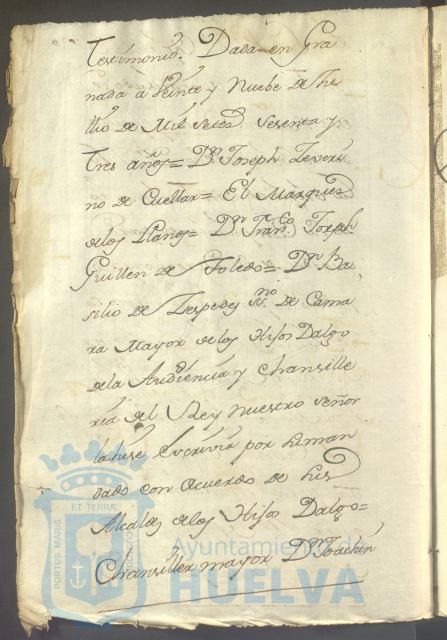 Testimonio. Dada en Gra
nada a Veinte y Nuebe de Ju
llio de Mil Setec.s Sesenta y
tres años= D.n Joseph Zeveri
no de Cuellar= El Marques
de los Llanos= D.n Fran.co Joseph
Guillen de Toledo= D.n Ba
silio de Zespedes SS.no de Cama
ra Mayor de los Hijos Dalgo
de la Audiencia y Chansille
ria del Rey nuestro Señor
la hise Escrivir por su man
dado con Acuerdo de sus
Alcaldes de los Hijos Dalgo=
Chansiller mayor D.n
PORTUS MARIS
ET TERRÆ
Ayuntamiento de
HUELVA